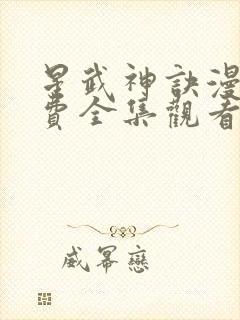 星武神訣漫
費全集觀看
威冪戀